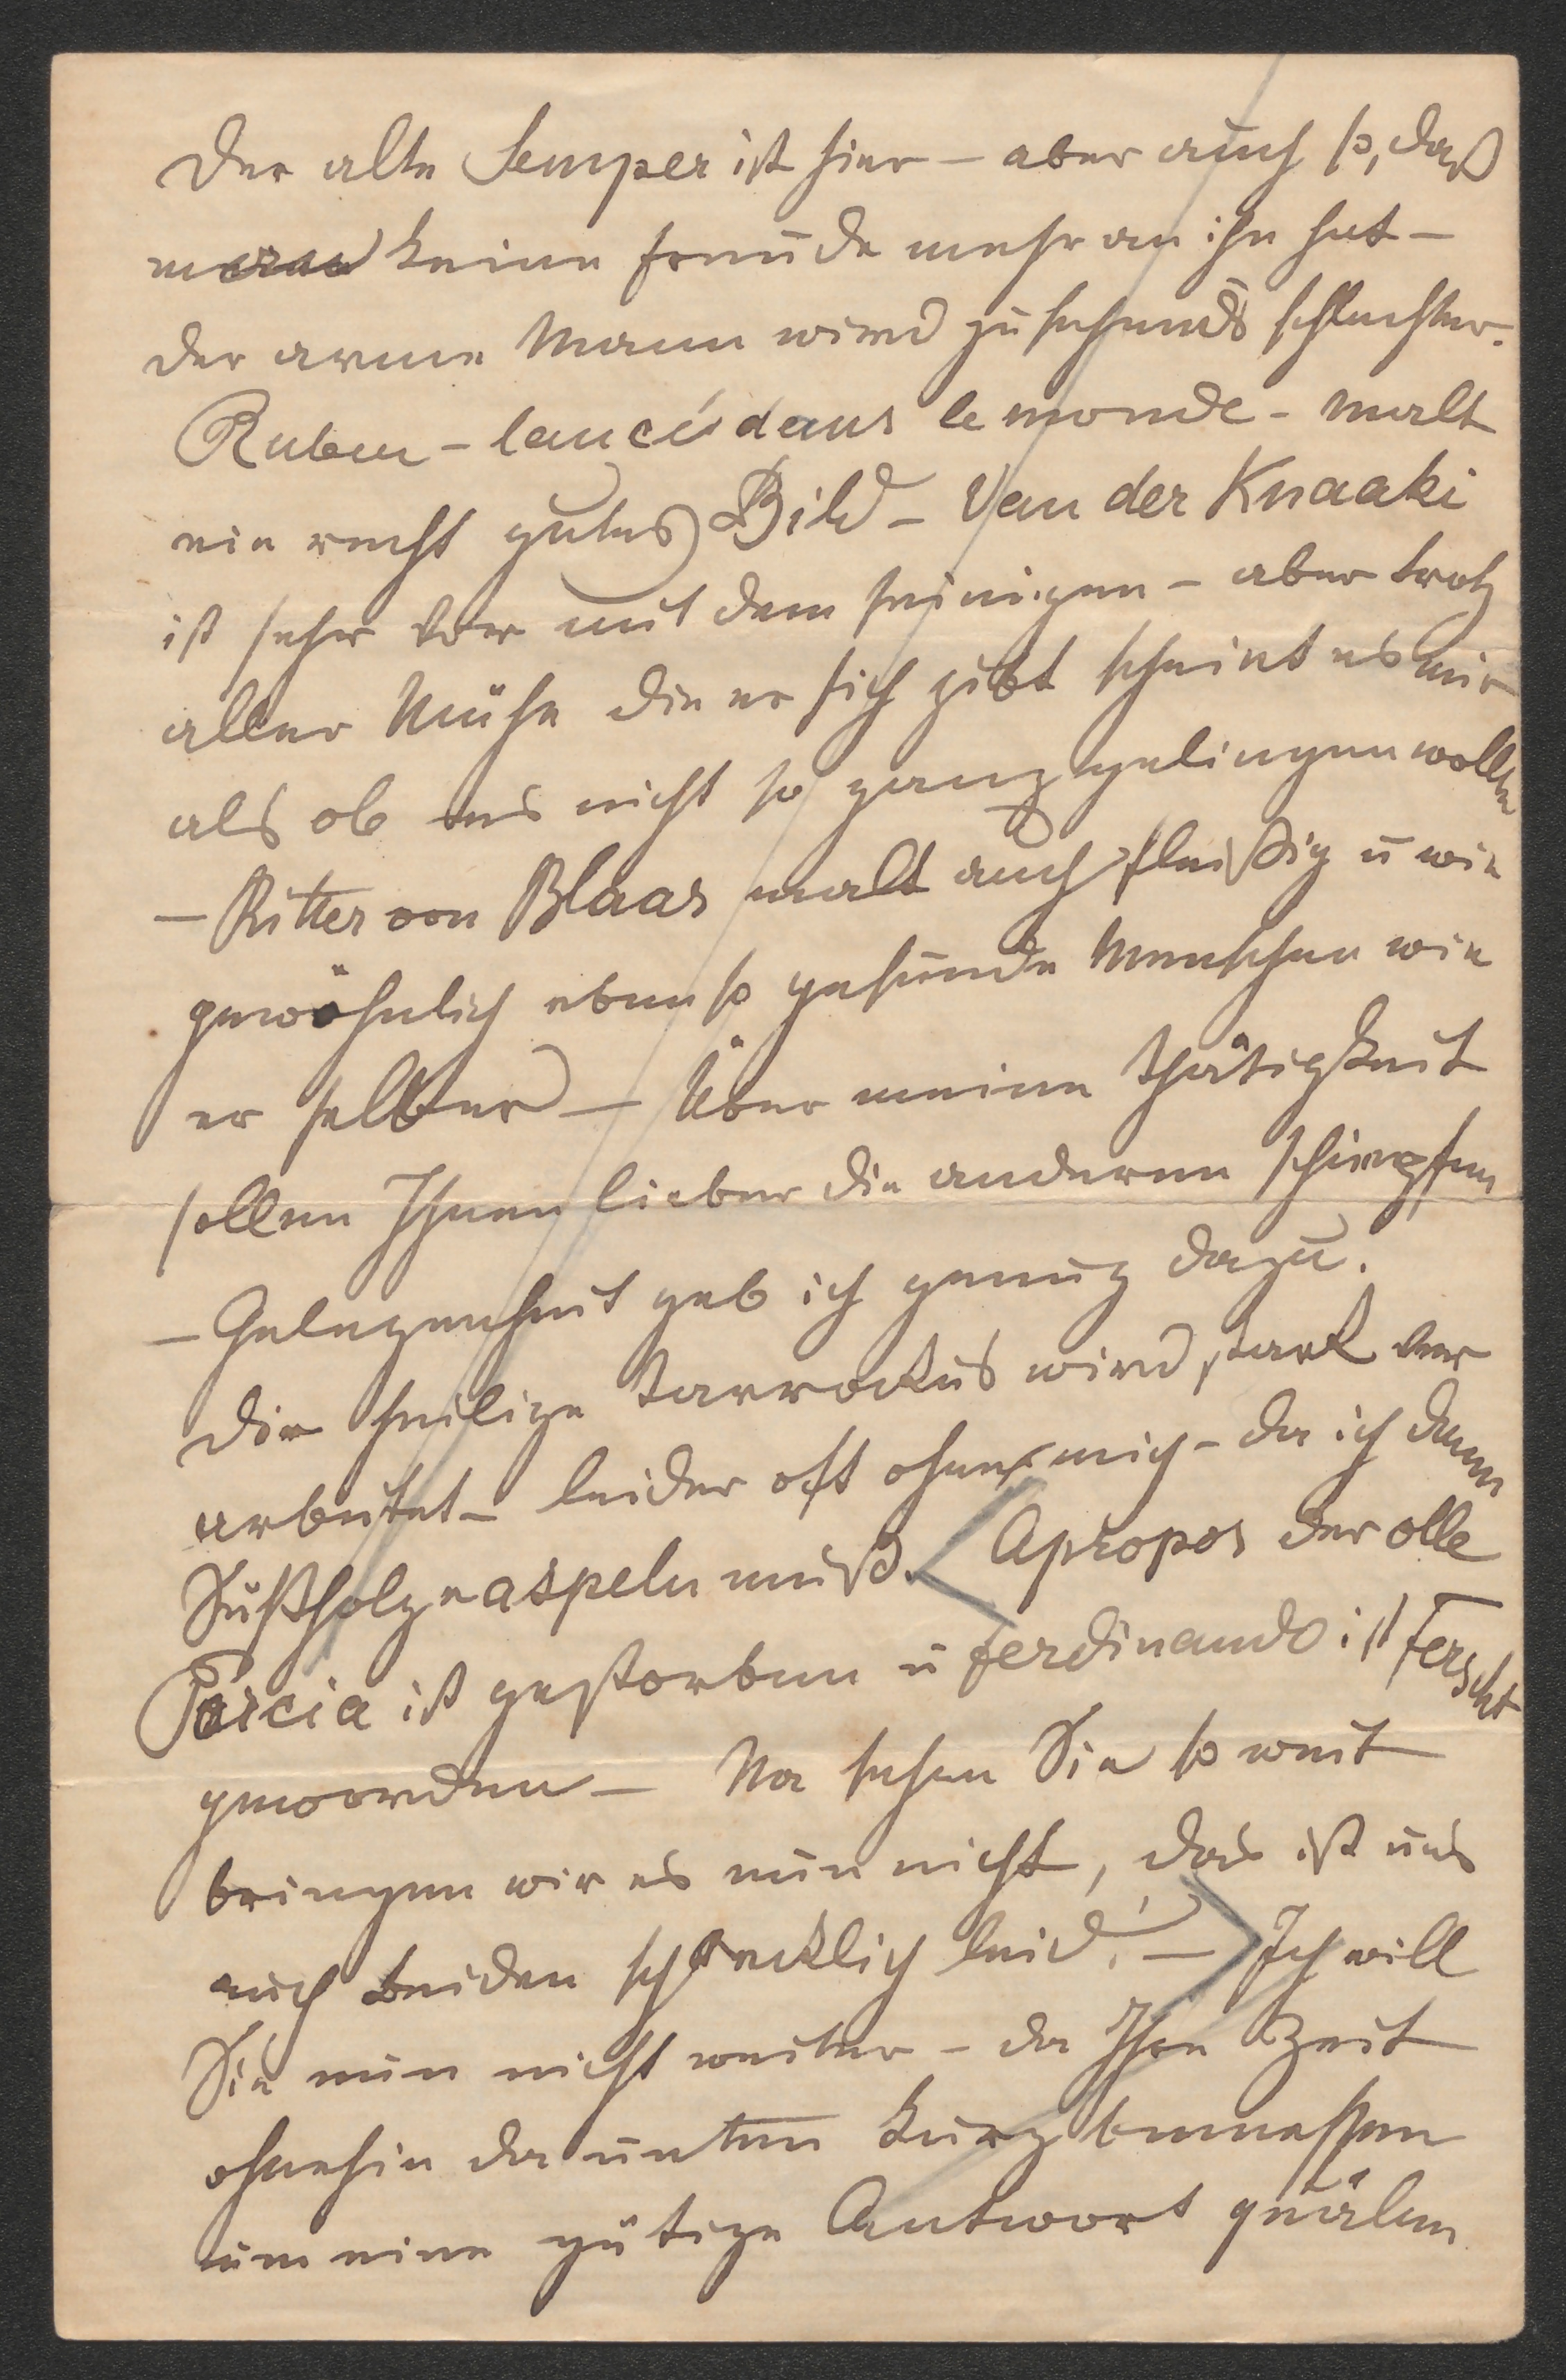 Der alte Semper ist hier – aber auch so, daß
man keine Freude mehr an ihn hat –
der arme Mann wird zusehends schlechter.
Ruben – lancé dans le monde – malt
ein recht gutes Bild – Van der Knaaki
ist sehr vor mit dem seinigen – aber trotz
aller Mühe die er sich gibt scheint es mir
als ob es nicht so ganz gelingen wollte
– Ritter von Blaas malt auch fleißig u wie
gewöhnlich eben so gesunde Menschen wie
er selber – Über meine Thätigkeit
sollen Ihnen lieber die anderen schimpfen
– Gelegenheit geb ich genug dazu.
Die heilige Tarrockus wird stark ver
arbeitet – leider oft ohne mich – da ich dann
Süßholzraspeln muß. Apropos der olle
Porcia ist gestorben u Ferdinando ist Ferscht
geworden – Na sehen Sie so weit
bringen wir es nun nicht, das ist uns
auch beiden schrecklich leid! – Ich will
Sie nun nicht weiter – da Ihre Zeit
ohnehin da unten kurz bemessen
um eine gütige Antwort quälen